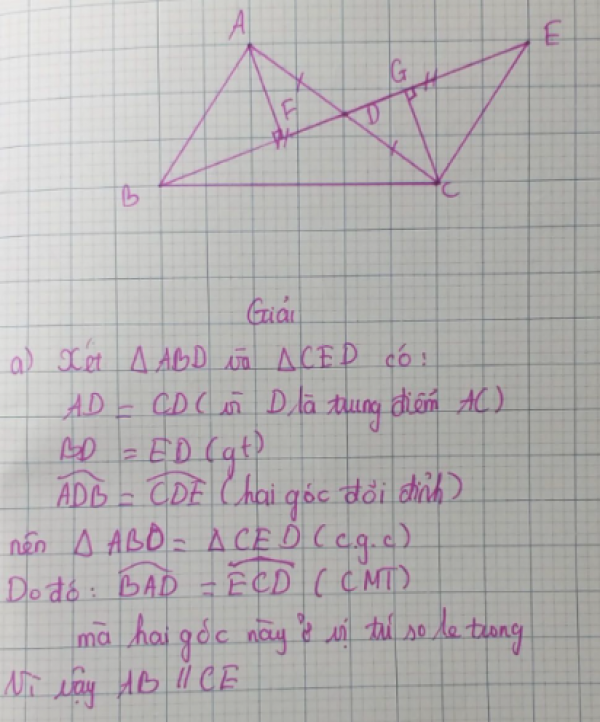 A
E
G
F
D
B
C
Giải
a) Xét △ABD và △CED có:
AD = CD (vì D là trung điểm AC)
BD = ED (gt)
ADB = CDE (hai góc đối đỉnh)
nên △ABD = △CED (c.g.c)
Do đó: BAD = ECD (CMT)
mà hai góc này ở vị trí so le trong
Vì vậy AB // CE